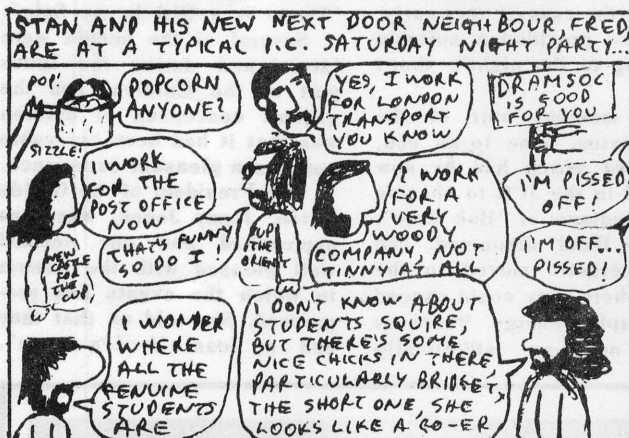 STAN AND HIS NEW NEXT DOOR NEIGHBOUR, FRED,
ARE AT A TYPICAL P.C. SATURDAY NIGHT PARTY...
POP!
POPCORN
ANYONE?
SIZZLE!
YES, I WORK
FOR LONDON
TRANSPORT
YOU KNOW
DRAMSOC
IS GOOD
FOR YOU
I WORK
FOR THE
POST OFFICE
NOW
THAT'S FUNNY
SO DO I!
NEWCASTLE
FOR
THE
CUP
UP
THE
ORIENT
I WORK
FOR A
VERY
WOODY
COMPANY, NOT
TINNY AT ALL
I'M PISSED
OFF!
I'M OFF..
PISSED!
I WONDER
WHERE
ALL THE
GENUINE
STUDENTS
ARE
I DON'T KNOW ABOUT
STUDENTS SQUIRE
BUT THERE'S SOME
NICE CHICKS IN THERE,
PARTICULARLY BRIDGET,
THE SHORT ONE, SHE
LOOKS LIKE A GO-ER